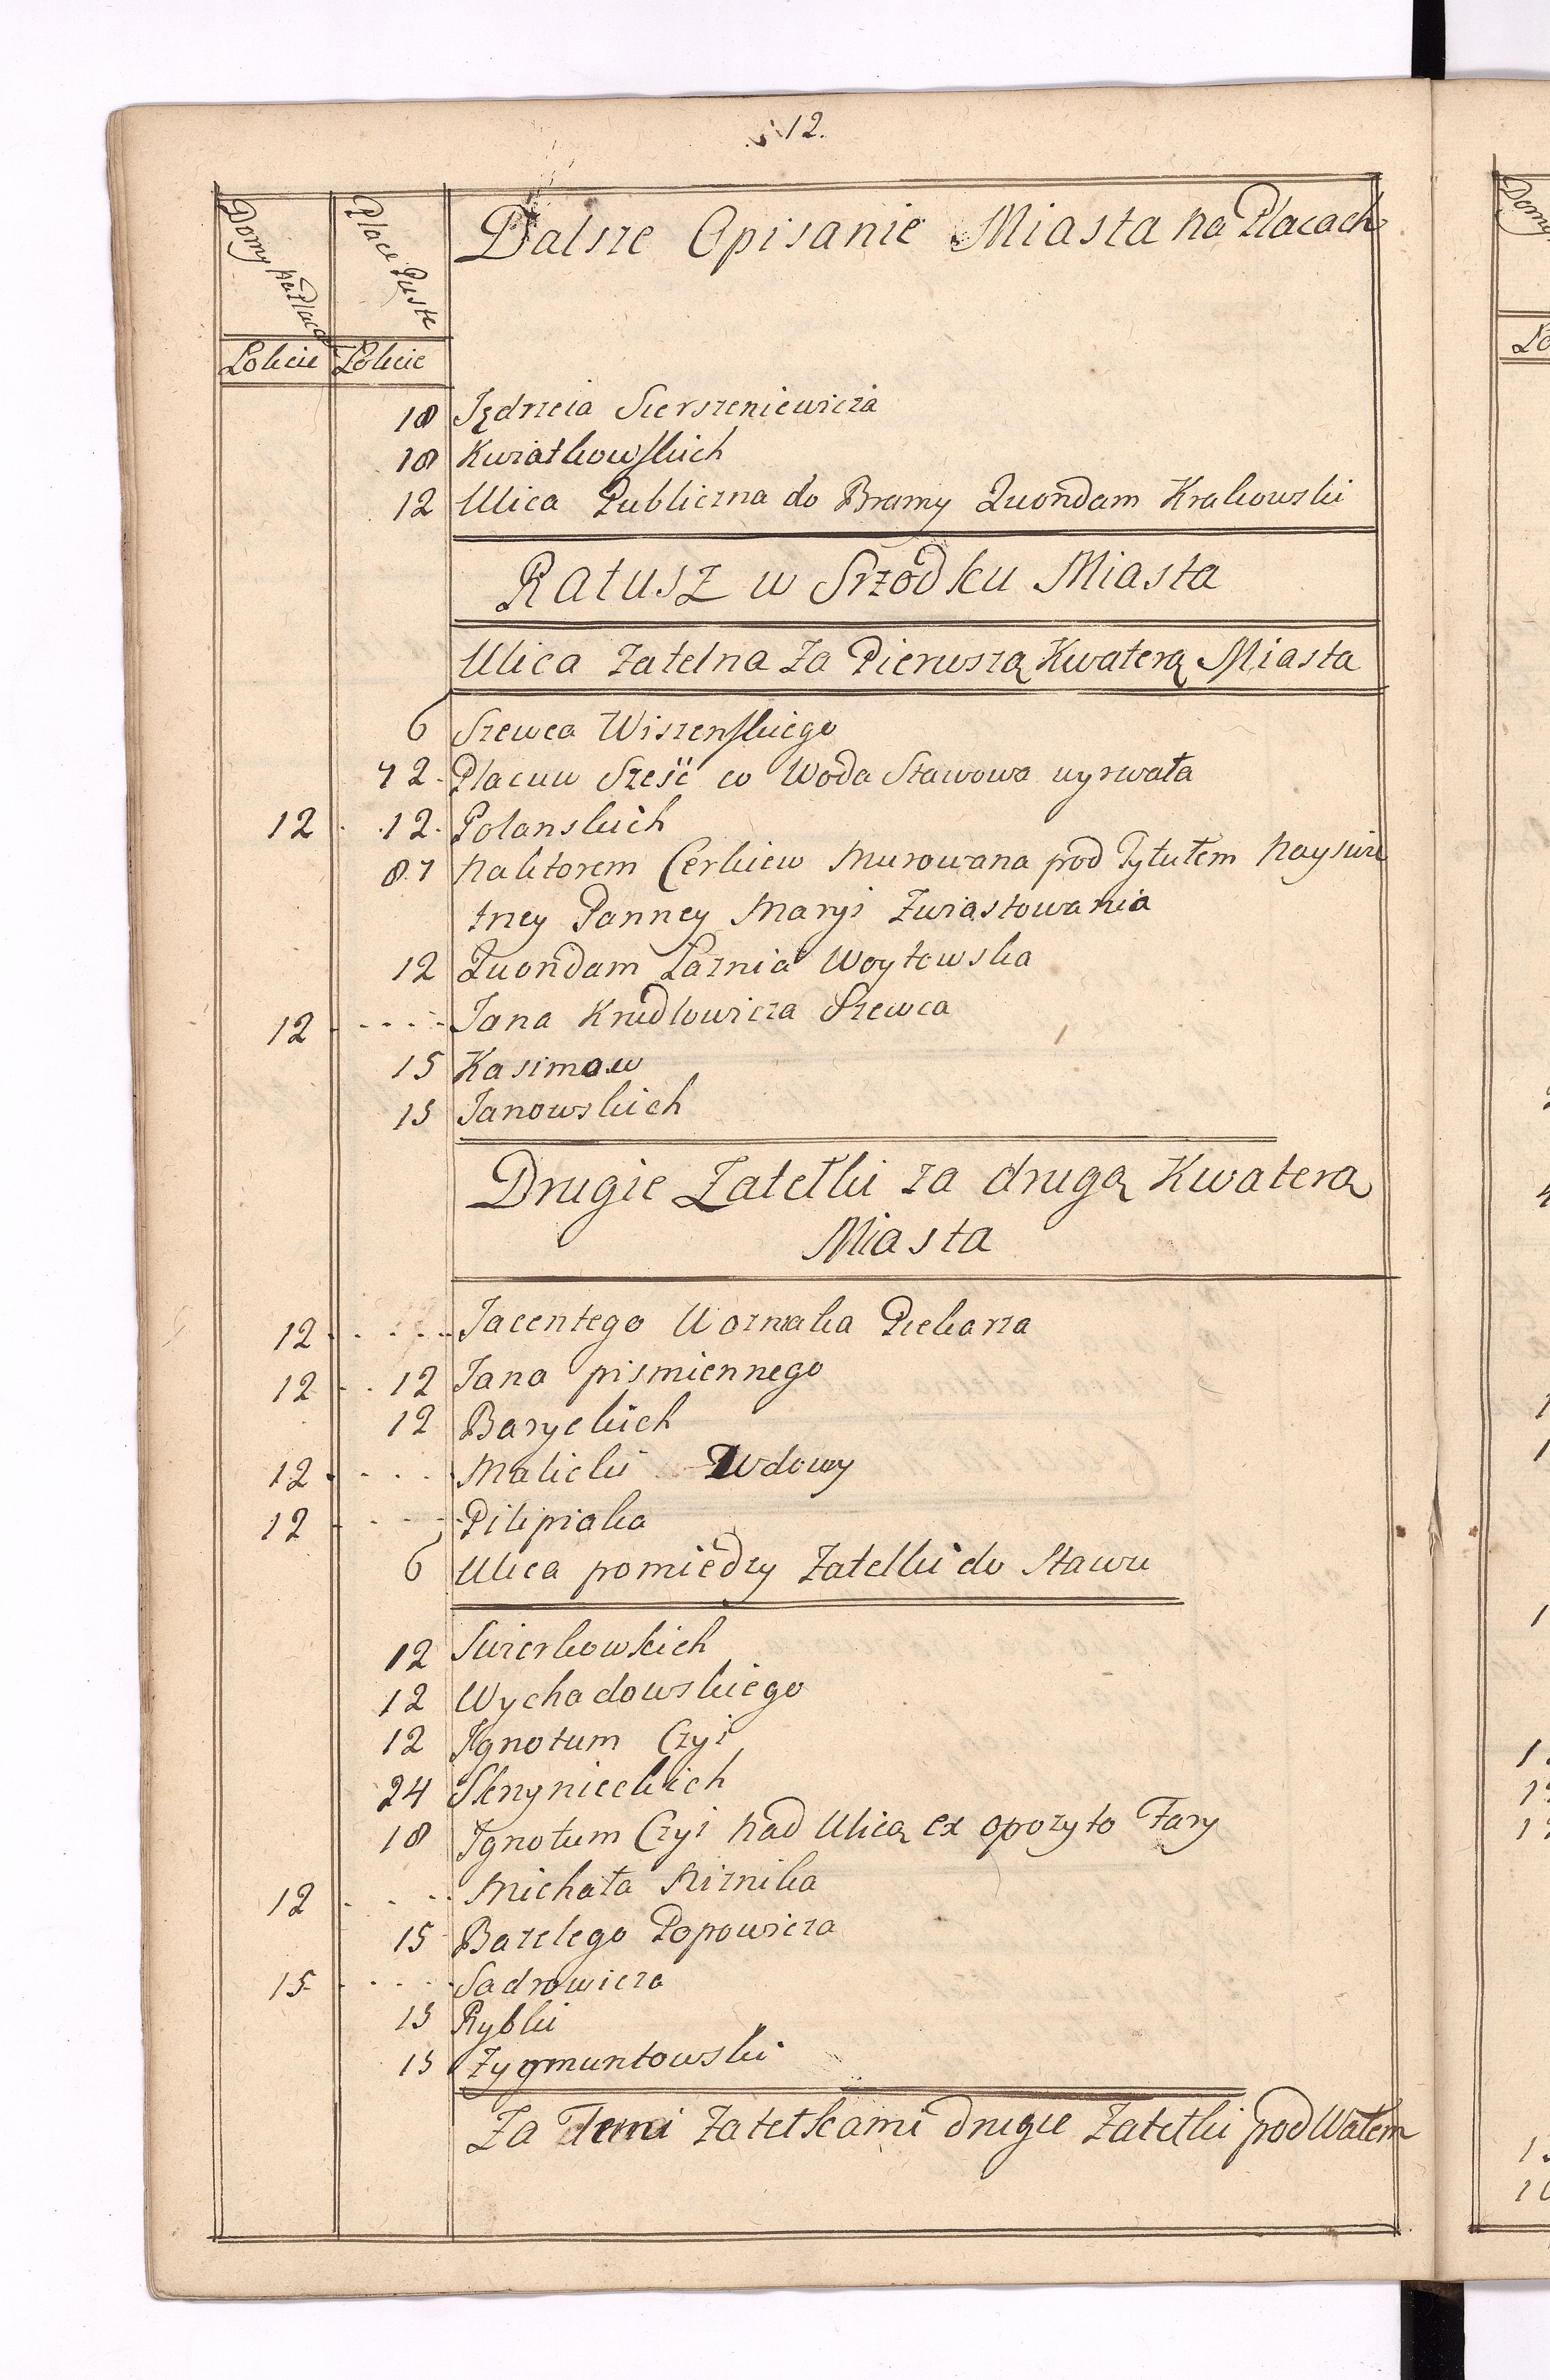 12.
Domy na Placach Place Puste Dalsze Opisanie Miasta na Placach
Łokcie Łokcie
18 Jędrzeia Sierszeniewicza
18 Kwiatkowskich
12 Ulica Publiczna do Bramy Quondam Krakowski
Ratusz w Srzodku Miasta
Ulica Zatelna Za Pierwszą Kwaterą Miasta
6 Szewca Wiszenskiego
72. Placuw Sześć co Woda Stawowa wyrwała
12 12. Polanskich
87 Na ktorem Cerkiew Murowana pod Tytułem Nayswię
tney Panney Maryi Zwiastowania
12 Quondam Łaznia Woytowska
12 Jana Krudlowicza Szewca
15 Kasimow
15 Janowskich
Drugie Zatełki za drugą Kwaterą
Miasta
12 Jacentego Woznaka Piekarza
12 12 Jana pismiennego
12 Baryckich
12 Malicki Wdowy
12 Pilipiaka
6 Ulica pomiędzy Zatelki do Stawu
12 Swierkowskich
12 Wychadowskiego
12 Ignotum Czyi
24 Skrynieckich
18 Ignotum Czyi nad Ulicą ex opozyto Fary
12 Michała Miznika
15 Bazelego Popowicza
15 Sadrowicza
15 Rybki
15 Zygmuntowski
Za Temi Zatetkami drugie Zatelki pod Wałem